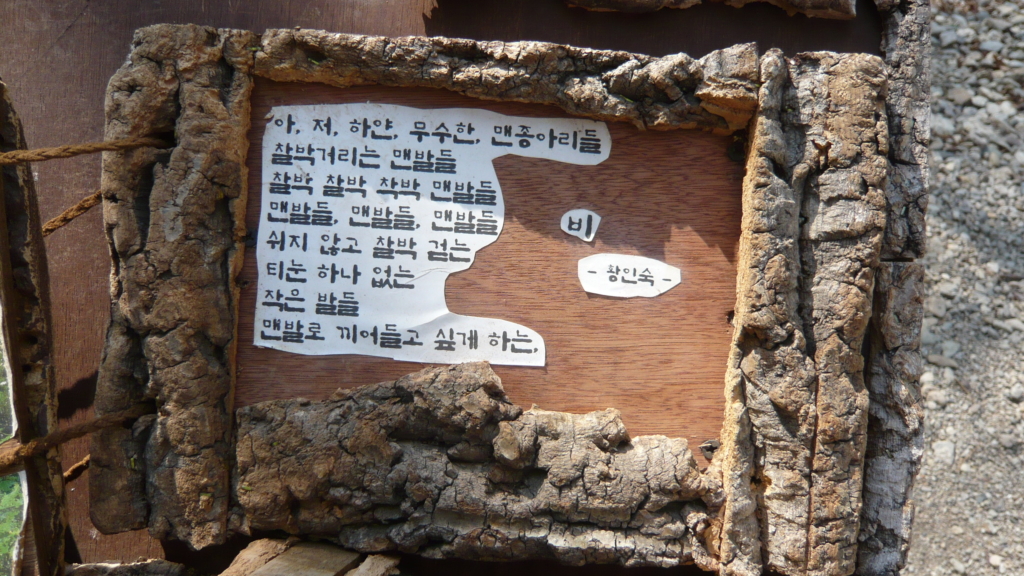 아, 저, 하얀, 무수한, 맨종아리들
찰박거리는 맨발들
찰박 찰박 착박 맨발들
맨발들, 맨발들, 맨발들
쉬지 않고 찰박 걷는
티눈 하나 없는
작은 발들
맨발로 끼어들고 싶게 하는,
비
- 황인숙 -